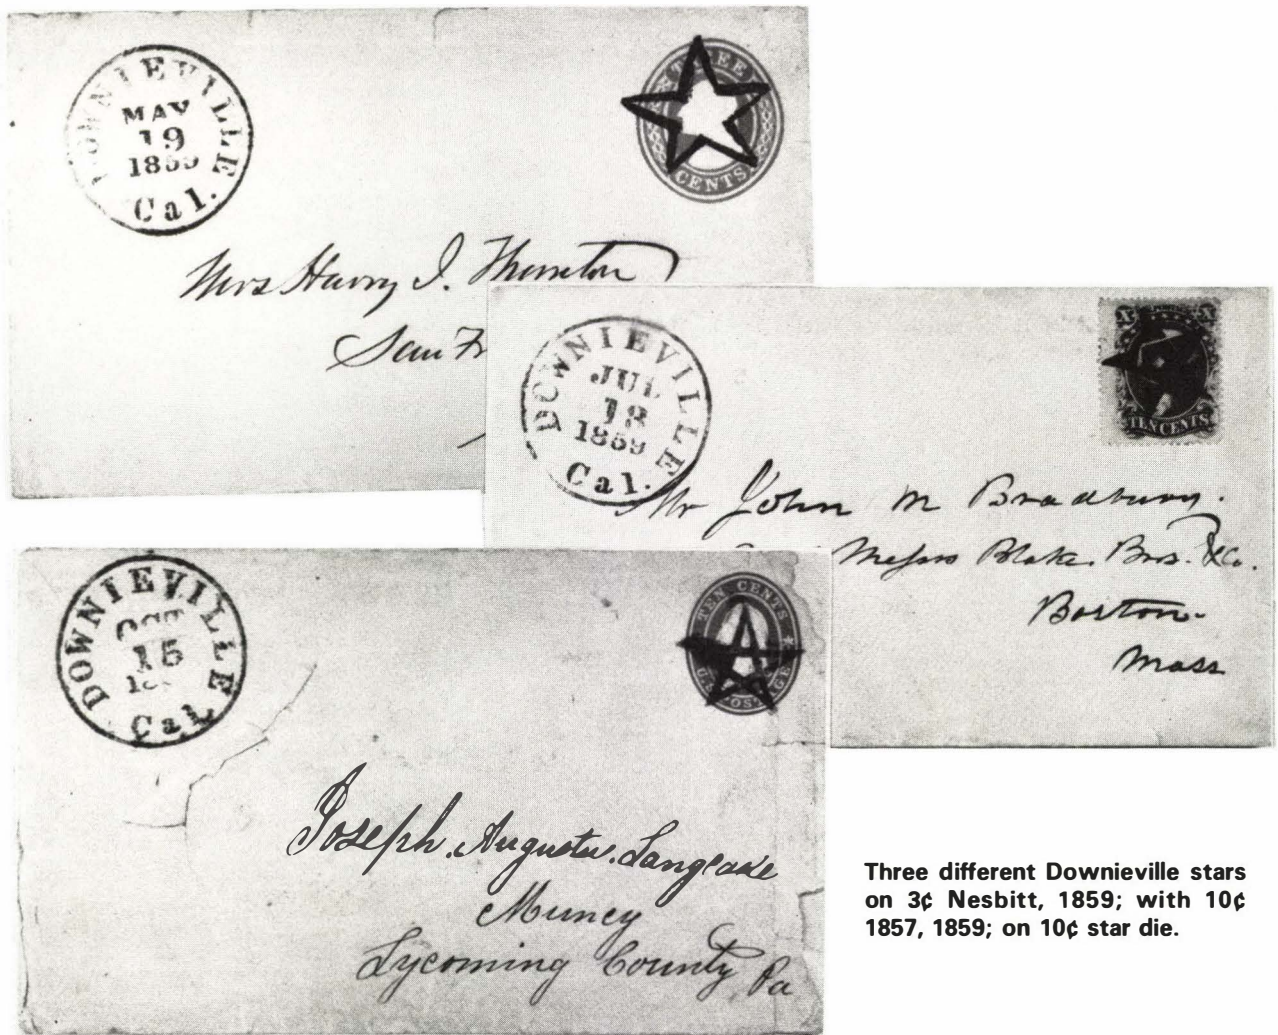 DOWNIEVILLE
MAY
19
1859
Cal.
THREE
CENTS
Mrs Harry I. Thornton
San Fr
DOWNIEVILLE
JUL
18
1859
Cal.
X X
TEN CENTS
Mr John M Bradbury.
Messrs Blake Bros. & Co.
Boston
Mass
DOWNIEVILLE
OCT
15
Cal.
TEN CENTS
U.S. POSTAGE
Joseph. Augustus. Langcake
Muncy
Lycoming County Pa
Three different Downieville stars
on 3¢ Nesbitt, 1859; with 10¢
1857, 1859; on 10¢ star die.